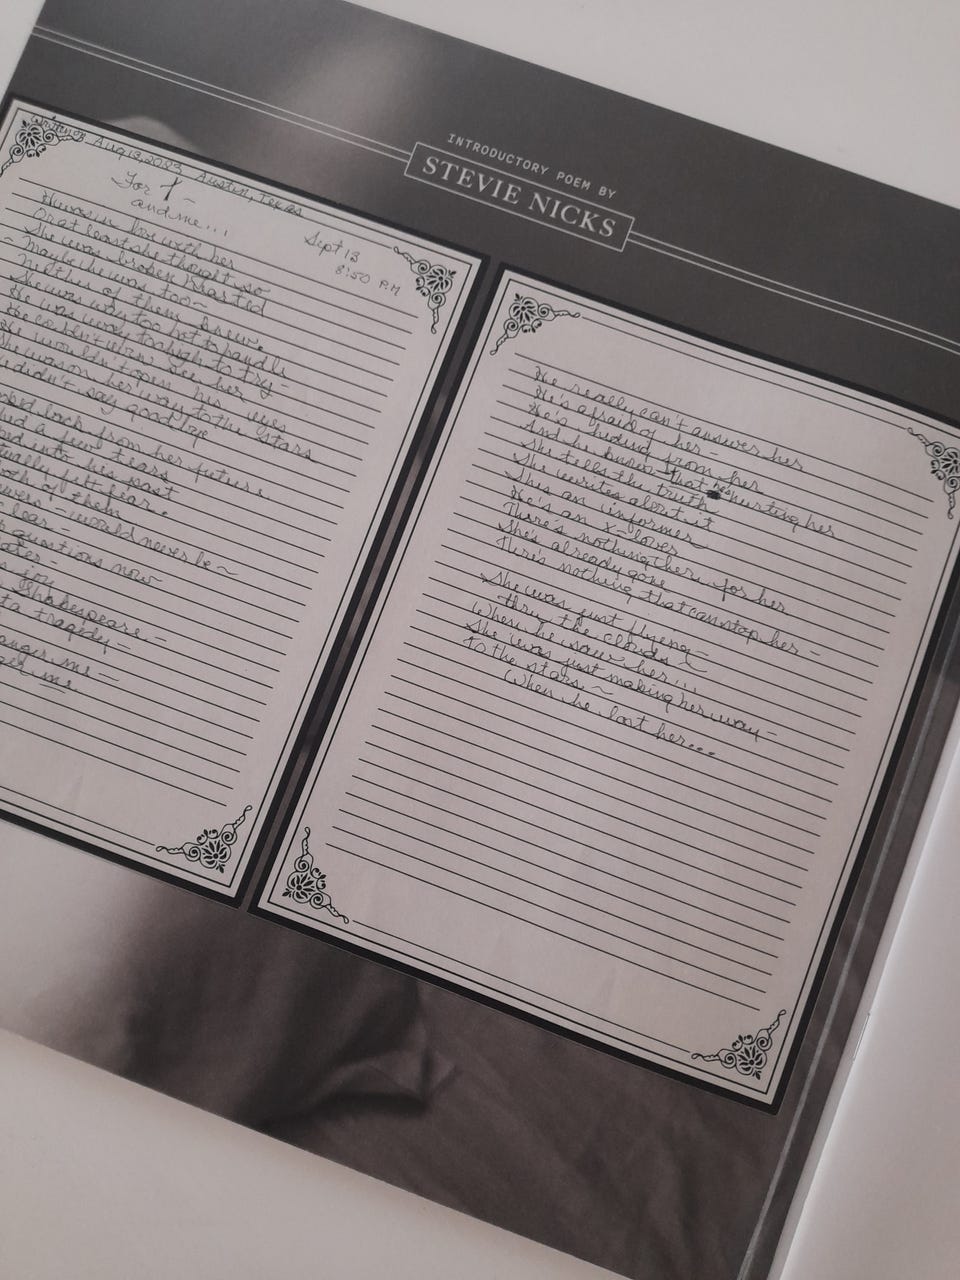 INTRODUCTORY POEM BY
STEVIE NICKS
Written Aug 13, 2023 Austin, Texas
For T –
and me...
Sept 13
8:50 P.M
He was in love with her
Or at least she thought so
She was broken hearted
– Maybe he was too –
Neither of them knew.
She was way too hot to handle
He was way too high to try –
He couldn't even see her
He wouldn't open his eyes
She was on her way to the stars
didn't say goodbye
back from her future.
a few tears
into her past
felt fear.
them
– would never be ~
questions now
joy
Shakespeare –
a tragedy –
me –
me.
He really can't answer her
He's afraid of her –
He's hiding from her
And he knows that he's hurting her
She tells the truth
She writes about it
She's an informer
He's an x-lover
There's nothing there for her
She's already gone
There's nothing that can stop her –
She was just flying –
thru the clouds ~
When he saw her!!!
She was just making her way –
To the stars ~
When he lost her...